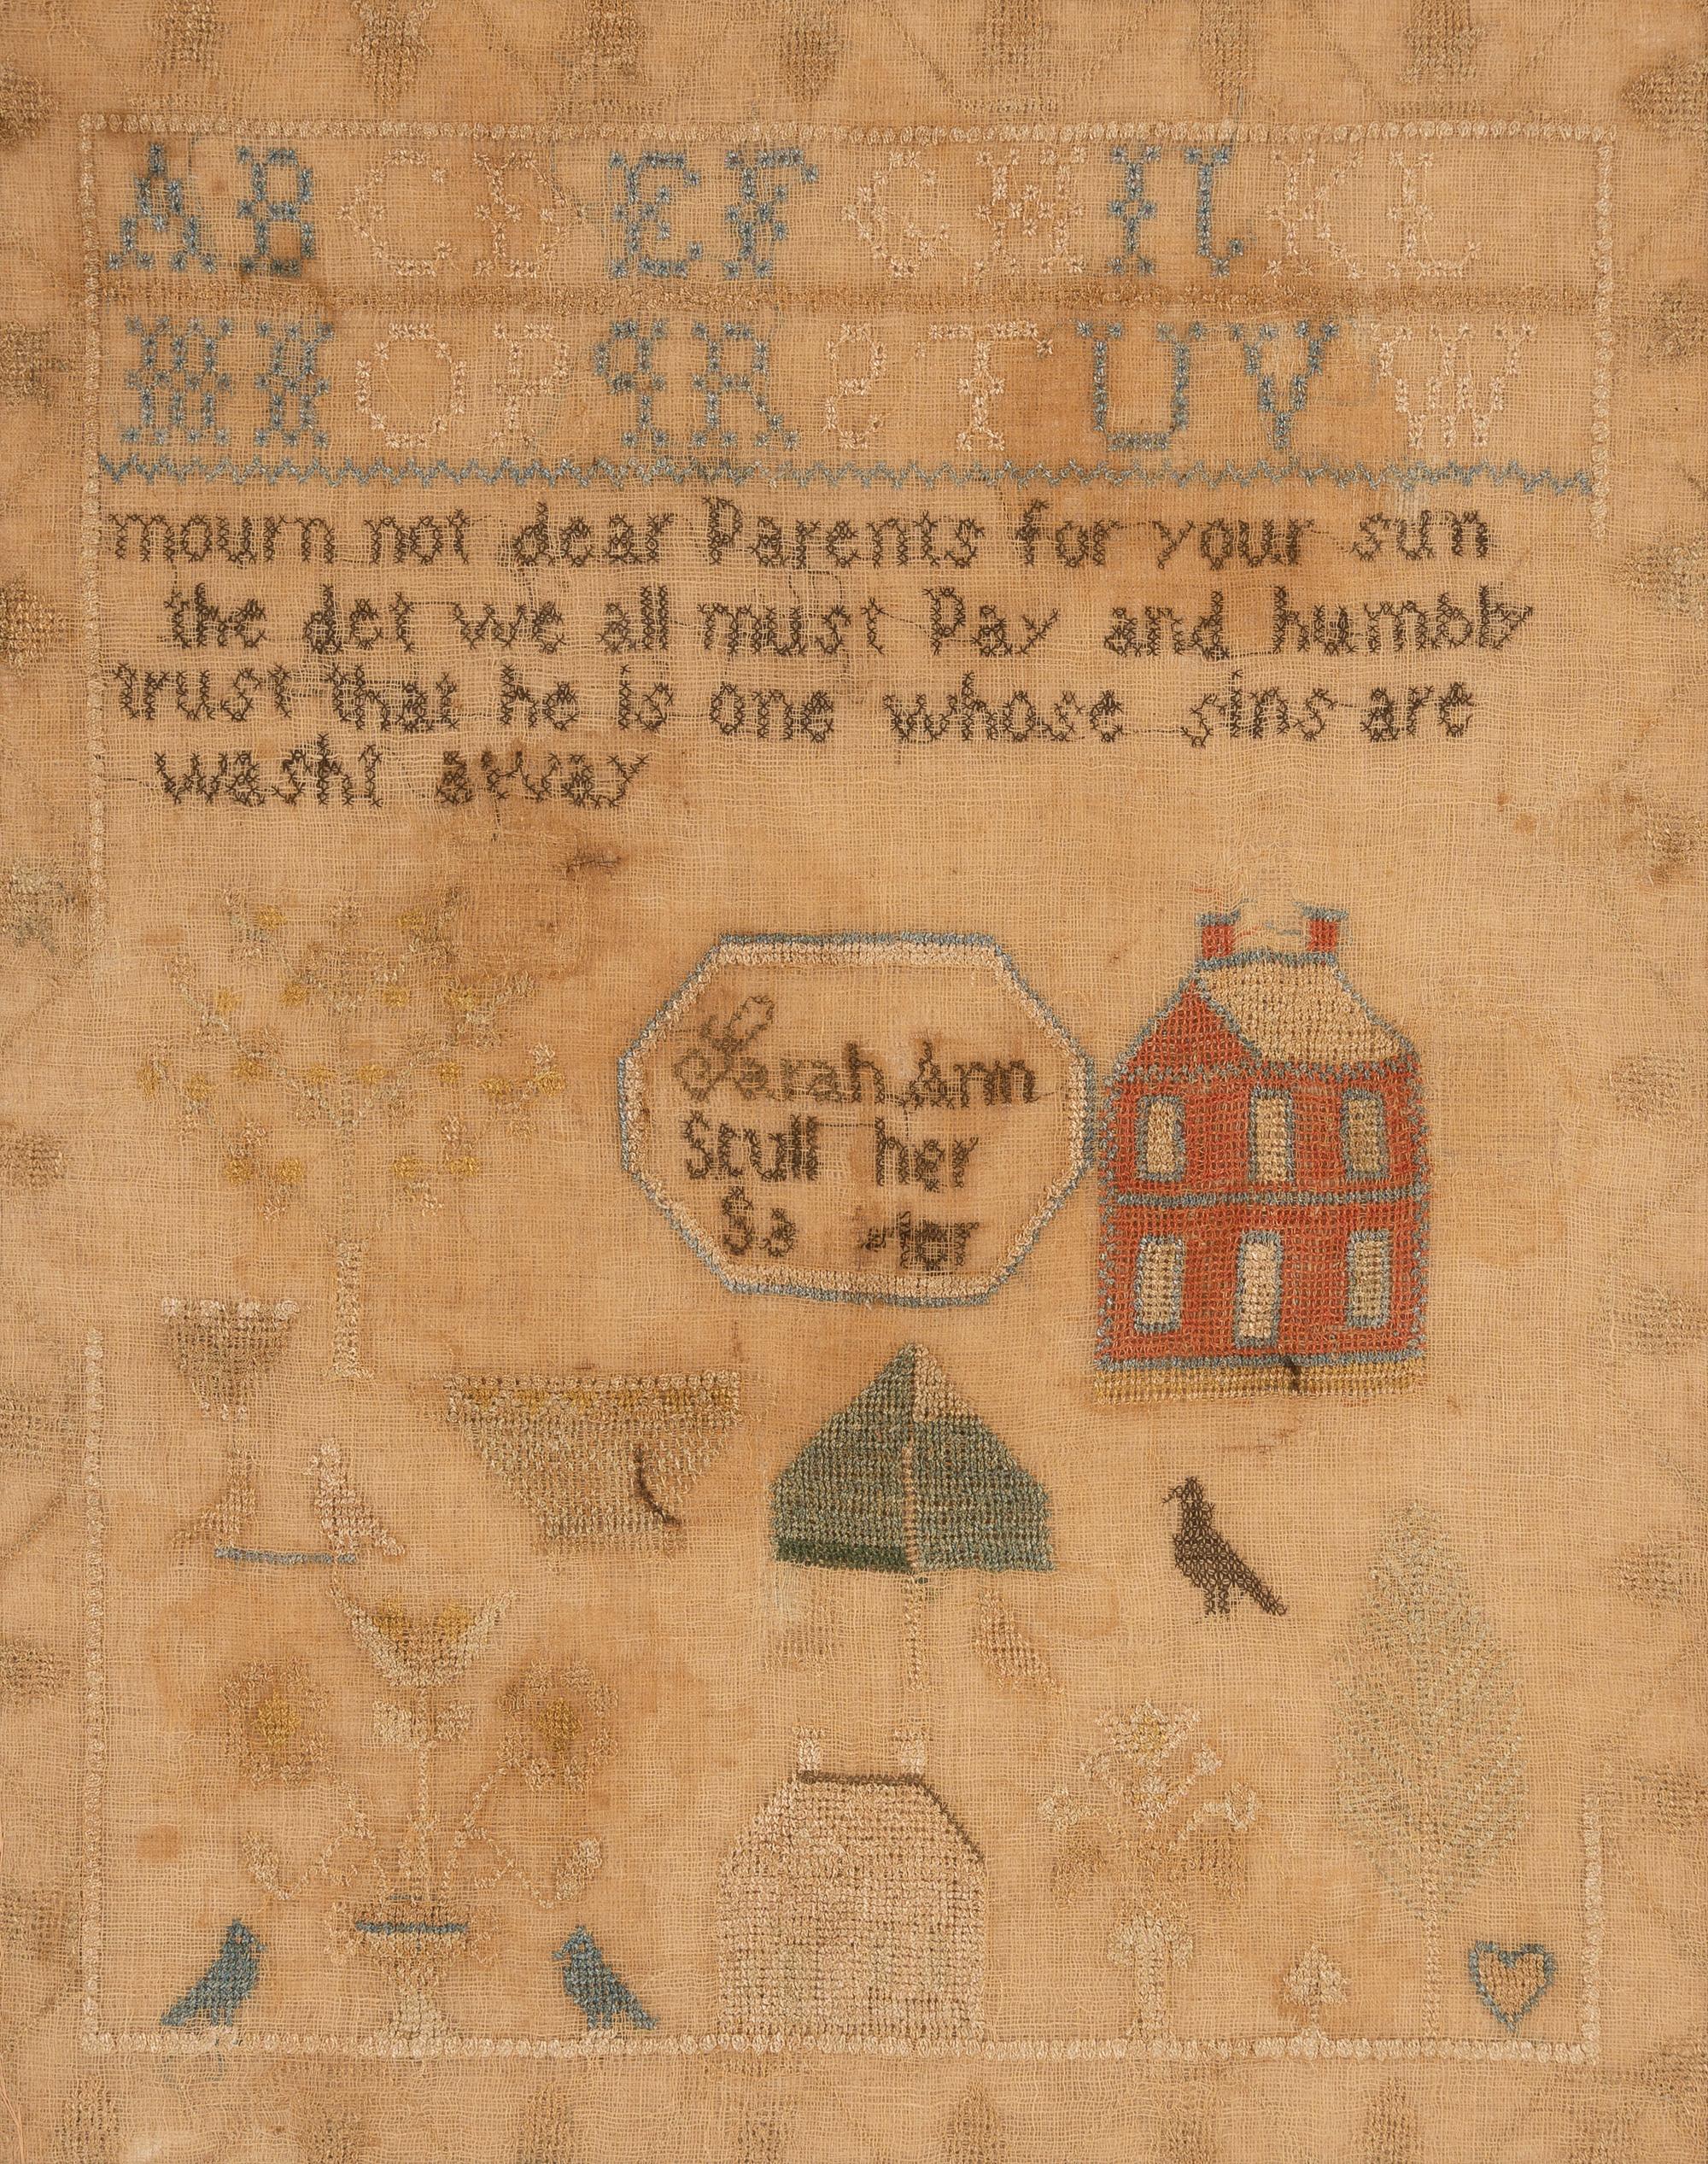 A B C D E F G H I J K L
M N O P q R S T U V W
mourn not dear Parents for your sun
the det we all must Pay and humbly
trust that he is one whose sins are
washt away
Sarah Ann
Scull her